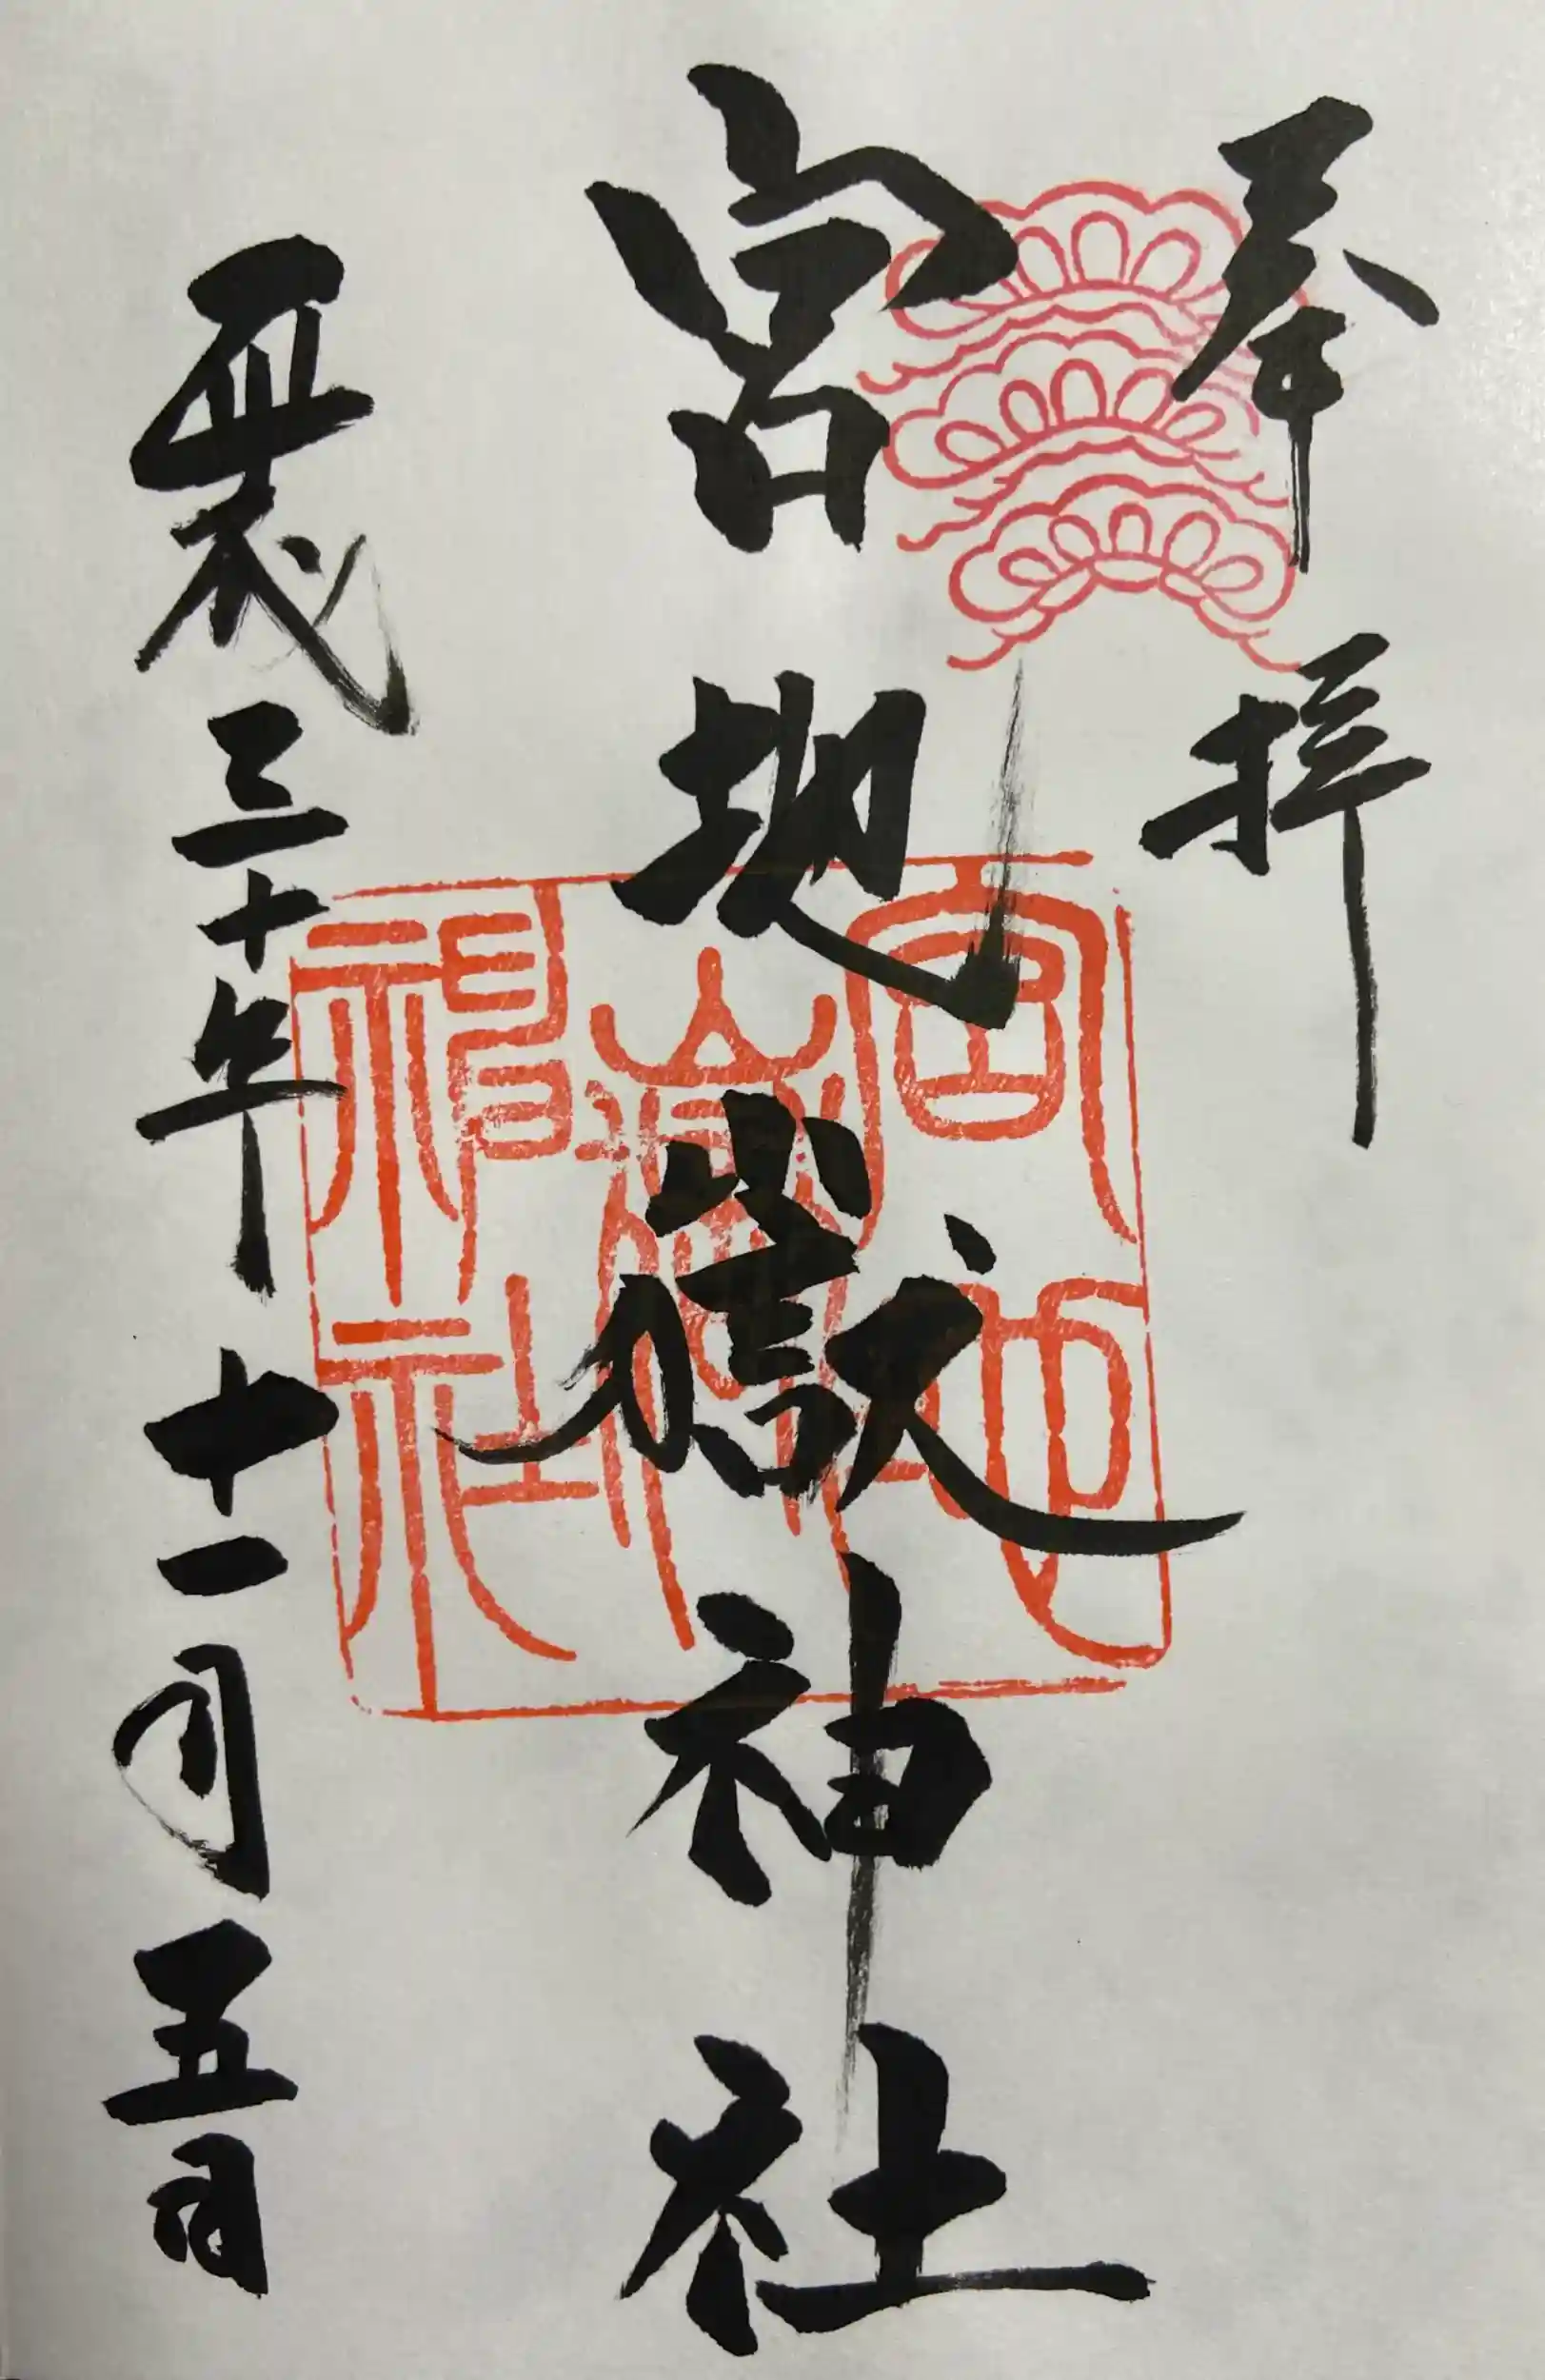 奉拝
宮地嶽神社
宮地嶽神社
平成三十年十一月五日